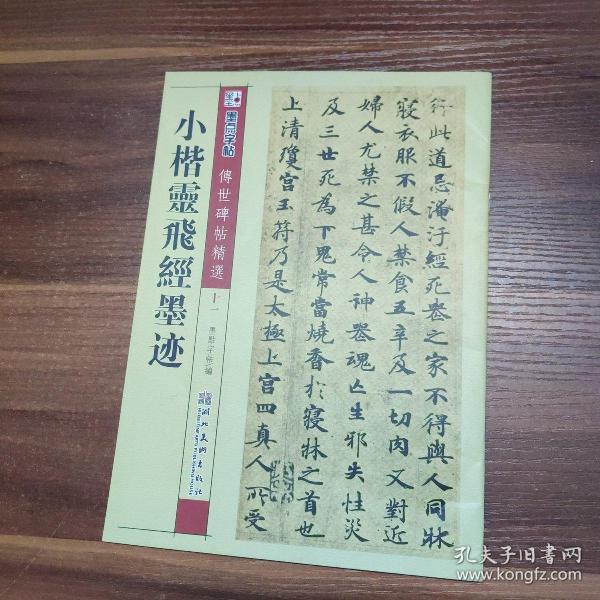 小楷靈飛經墨迹
墨点字帖
傳世碑帖精選
十一
墨點字帖 編
湖北美術出版社
行此道忌淹汙經死喪之家不得與人同牀
寢衣服不假人禁食五辛及一切肉又對近
婦人尤禁之甚令人神喪魂亡生邪失性災
及三世死為下鬼常當燒香於寢牀之首也
上清瓊宮玉符乃是太極上宮四真人所受
孔夫子旧书网
www.kongfz.com